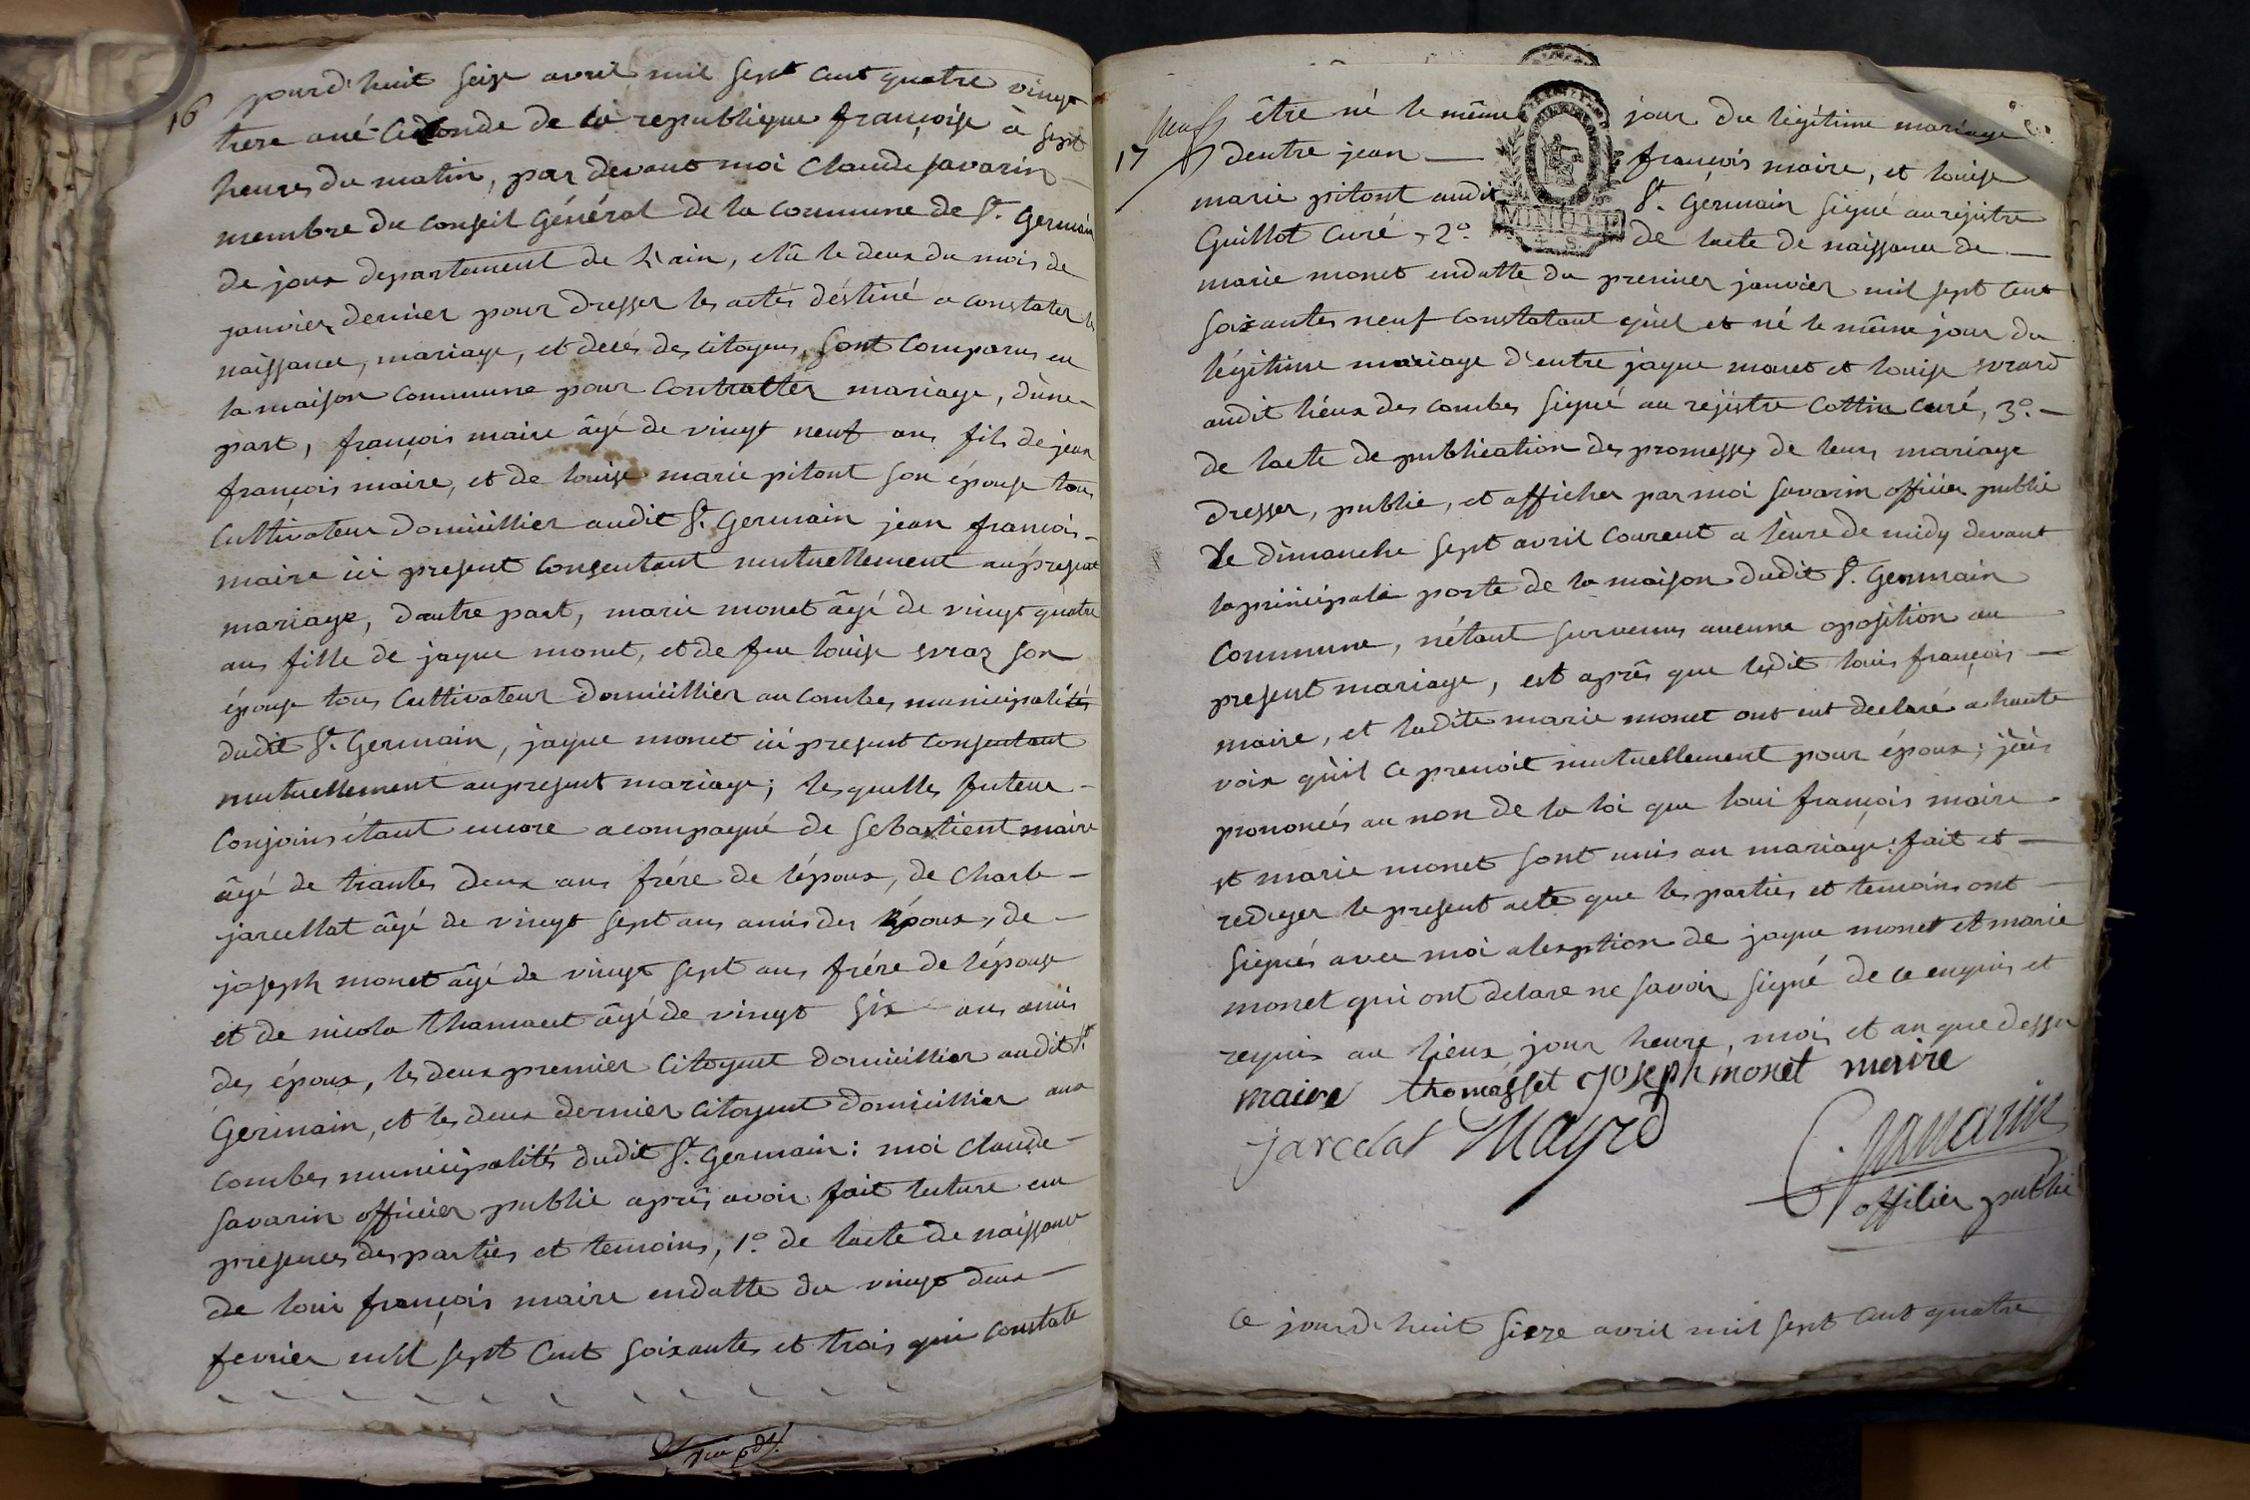 16
jourd'huit seise avril mil sept cent quatre vingt
treze ané seconde de la republique françoise à sept
heures du matin, par devant moi Claude savarin
membre du conseil Général de la commune de St. Germain
de joux departement de L'ain, élû le deux du mois de
janvier dernier pour dresser les actes déstiné a constater les
naissance, mariage, et decés des citoyens, sont comparus en
la maison commune pour contratter mariage, d'une
part, françois maire âgé de vingt neuf ans fils de jean
françois maire, et de louise marie pitont son épouse tous
Cultivateur domicillier audit St. Germain jean françois
maire ici present consentant mutuellement au présent
mariage, dautre part, marie monet âgé de vingt quatre
ans fille de jaque monet, et de feu louise evraz son
épouse tous Cultivateur domicillier au combes municipalités
dudit St. Germain, jaque monet ici present consentant
mutuellement au present mariage; lesquelles futeur
Conjoins étant encore acompagné de sebastient maire
âgé de trantes deux ans frére de l'époux, de charle
jarcellat âgé de vingt sept ans amis des époux, de
joseph monet âgé de vingt sept ans frére de l'épouse
et de nicola thamaset âgé de vingt six ans amis
des époux, les deux premier Citoyent domicillier audit St.
Germain, et les deux dernier citoyent domicillier aux
combes municipalités dudit St. Germain: moi claude
savarin officier public après avoir fait lecture en
presences des parties et temoins, 1º. de lacte de naissance
de loui françois maire endatte du vingt deux
fevrier mil sept cent soixantes et trois qui constate
17
être né le même jour du légitime mariage
dentre jean françois maire, et louise
marie pitont audit St. Germain signé au rejistre
Guillot Curé, 2º. de lacte de naissance de
MINUTE
marie monet endatte du premier janvier mil sept cent
soixantes neuf constatant qu'il et né le même jour du
légitime mariage d'entre jaque monet et louise evrard
audit liéux des combes signé au rejistre Cottin curé, 3º.
de lacte de publication des promesses de leurs mariage
dresser, publié, et afficher par moi savarin officier public
le dimanche sept avril Courent a l'eure de midy devant
la principale porte de la maison dudit St. Germain
Commune, n'étant survenus aucune oposition au
present mariage, est après que ledit louis françois
maire, et ladite marie monet ont eut declaré a haute
voix qu'il ce prenoit mutuellement pour époux; j'ais
prononcés au non de la loi que loui françois maire
et marie monet sont unis au mariage: fait et
rediger le present acte que les parties et temoins ont
signés avec moi alexption de jaque monet et marie
monet qui ont delare ne savoir signé de ce enquis et
requis au lieux jour heure, mois et an que dessu
maire thomasset joseph monet maire
jarcelat Mayrd
C. Savarin
offilier public
Ce jourd'huit sieze avril mil sept cent quatre